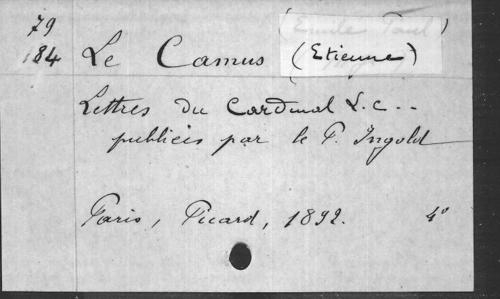 79
184 Le Camus (Etienne)
Lettres du Cardinal L. c...
publiées par le P. Ingold
Paris, Picard, 1892. 4°